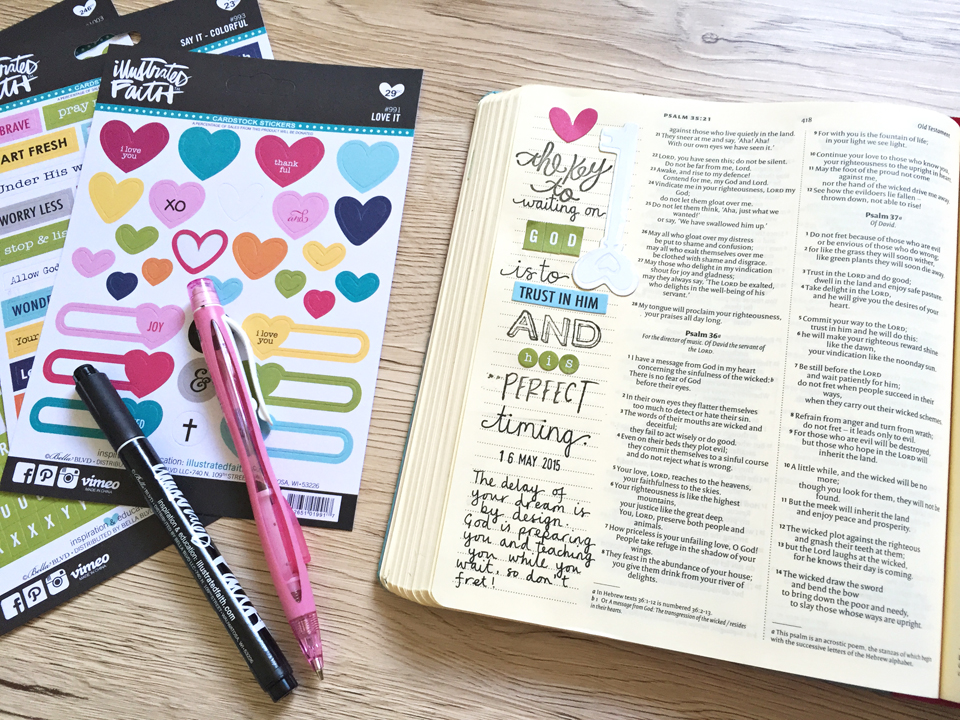 246
#993
SAY IT - COLORFUL
23
illustrated
FAITH
CARDSTOCK STICKERS
BRAVE
pray
ART FRESH
Under His w
WORRY LESS
stop & lis
Allow God
WONDE
Your
illustrated
FAITH
29
#991
LOVE IT
CARDSTOCK STICKERS
A PERCENTAGE OF SALES FROM THIS PRODUCT WILL BE DONATED
i love
you
thank
ful
XO
and
JOY
i love
you
&
inspiration & education: illustratedfaith.com
Bella BLVD
vimeo
MADE IN CHINA
inspiration & education
Bella BLVD • DISTRIBUTED BY BELLA BLVD
vimeo
MADE IN CHINA
inspiration & education: illustratedfaith.com
the Key
to
waiting on
GOD
is to
TRUST IN HIM
AND
his
PERFECT
timing.
16 MAY 2015
The delay of
your dream is
by design.
God is preparing
you and teaching
you while you
wait, so don't
fret!
PSALM 35:21
against those who live quietly in the land.
21 They sneer at me and say, 'Aha! Aha!
With our own eyes we have seen it.'
22 LORD, you have seen this; do not be silent.
Do not be far from me, Lord.
23 Awake, and rise to my defence!
Contend for me, my God and Lord.
24 Vindicate me in your righteousness, LORD my
God;
do not let them gloat over me.
25 Do not let them think, 'Aha, just what we
wanted!'
or say, 'We have swallowed him up.'
26 May all who gloat over my distress
be put to shame and confusion;
may all who exalt themselves over me
be clothed with shame and disgrace.
27 May those who delight in my vindication
shout for joy and gladness;
may they always say, 'The LORD be exalted,
who delights in the well-being of his
servant.'
28 My tongue will proclaim your righteousness,
your praises all day long.
Psalm 36a
For the director of music. Of David the servant of
the LORD.
1 I have a message from God in my heart
concerning the sinfulness of the wicked:b
There is no fear of God
before their eyes.
2 In their own eyes they flatter themselves
too much to detect or hate their sin.
3 The words of their mouths are wicked and
deceitful;
they fail to act wisely or do good.
4 Even on their beds they plot evil;
they commit themselves to a sinful course
and do not reject what is wrong.
5 Your love, LORD, reaches to the heavens,
your faithfulness to the skies.
6 Your righteousness is like the highest
mountains,
your justice like the great deep.
You, LORD, preserve both people and
animals.
7 How priceless is your unfailing love, O God!
People take refuge in the shadow of your
wings.
8 They feast in the abundance of your house;
you give them drink from your river of
delights.
a In Hebrew texts 36:1-12 is numbered 36:2-13.
b 1 Or A message from God: The transgression of the wicked / resides
in their hearts.
418
Old Testament
9 For with you is the fountain of life;
in your light we see light.
10 Continue your love to those who know you,
your righteousness to the upright in heart.
11 May the foot of the proud not come
against me,
nor the hand of the wicked drive me away.
12 See how the evildoers lie fallen –
thrown down, not able to rise!
Psalm 37a
Of David.
1 Do not fret because of those who are evil
or be envious of those who do wrong;
2 for like the grass they will soon wither,
like green plants they will soon die away.
3 Trust in the LORD and do good;
dwell in the land and enjoy safe pasture.
4 Take delight in the LORD,
and he will give you the desires of your
heart.
5 Commit your way to the LORD;
trust in him and he will do this:
6 he will make your righteous reward shine
like the dawn,
your vindication like the noonday sun.
7 Be still before the LORD
and wait patiently for him;
do not fret when people succeed in their
ways,
when they carry out their wicked schemes.
8 Refrain from anger and turn from wrath;
do not fret – it leads only to evil.
9 For those who are evil will be destroyed,
but those who hope in the LORD will
inherit the land.
10 A little while, and the wicked will be no
more;
though you look for them, they will not be
found.
11 But the meek will inherit the land
and enjoy peace and prosperity.
12 The wicked plot against the righteous
and gnash their teeth at them;
13 but the Lord laughs at the wicked,
for he knows their day is coming.
14 The wicked draw the sword
and bend the bow
to bring down the poor and needy,
to slay those whose ways are upright.
a This psalm is an acrostic poem, the stanzas of which begin
with the successive letters of the Hebrew alphabet.